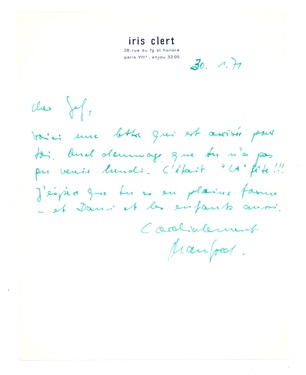 iris clert
28, rue du fg st honoré
paris VIIIᵉ, anjou 32.05
30. 1. 71
cher Gef,
voici une lettre qui est arrivée pour
toi. Quel dommage que tu n'as pas
pu venir lundi. C'était "LA" fête!!!
J'espère que tu es en pleine forme
– et Dani et les enfants aussi.
Cordialement